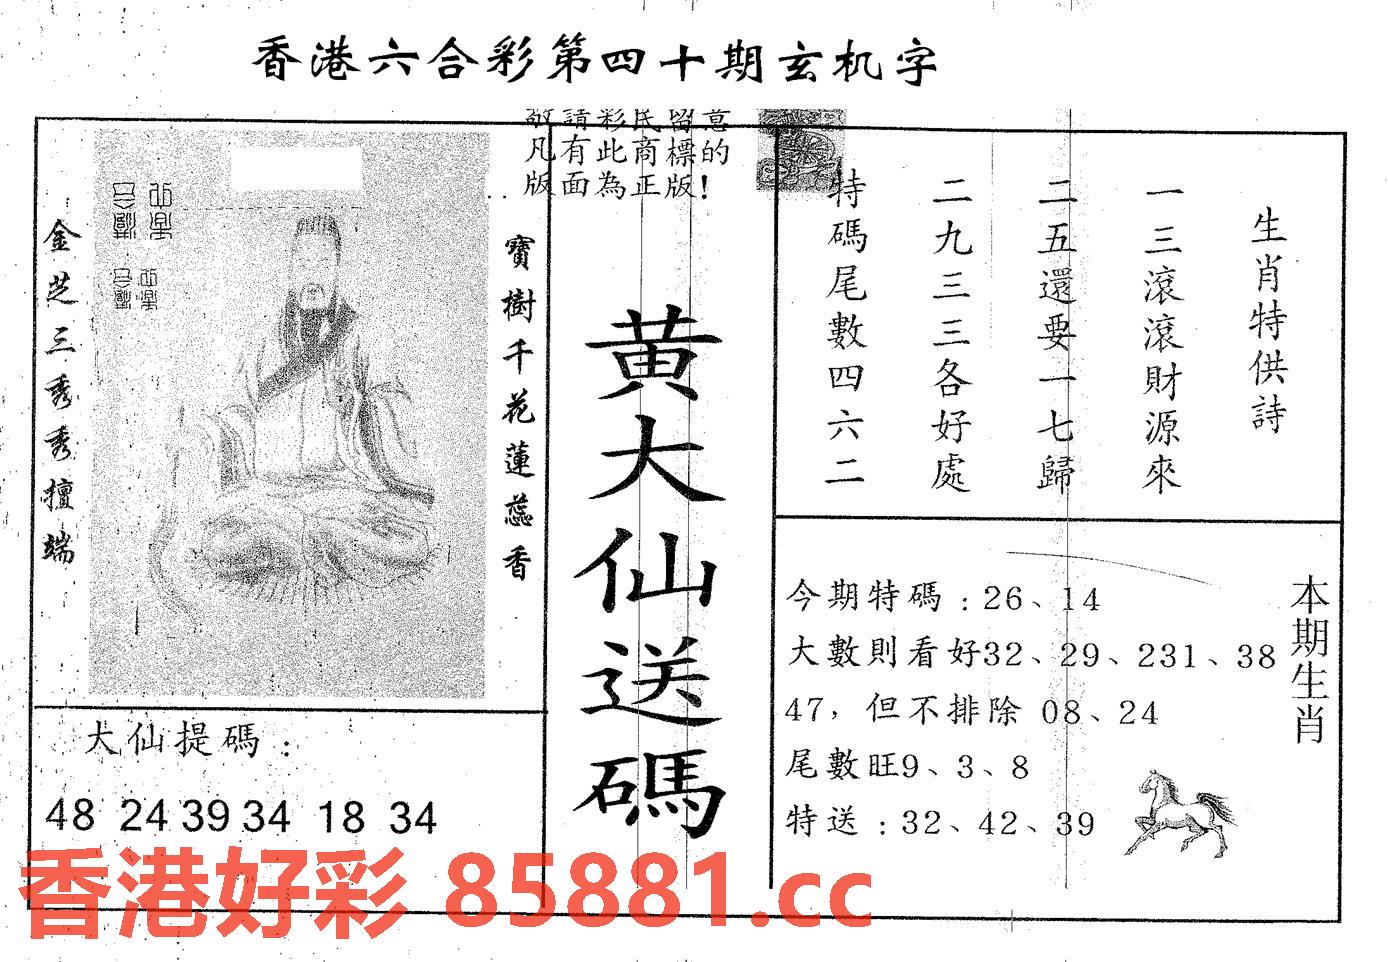 香港六合彩第四十期玄机字
敬請彩民留意
凡有此商標的
版面為正版!
生肖特供詩
一三滾滾財源來
二五還要一七歸
二九三三各好處
特碼尾數四六二
黃大仙送碼
寶樹千花蓮蕊香
金芝三秀秀擅端
本期生肖
今期特碼:26、14
大數則看好32、29、231、38
47,但不排除 08、24
尾數旺9、3、8
特送:32、42、39
大仙提碼:
48 24 39 34 18 34
香港好彩 85881.cc